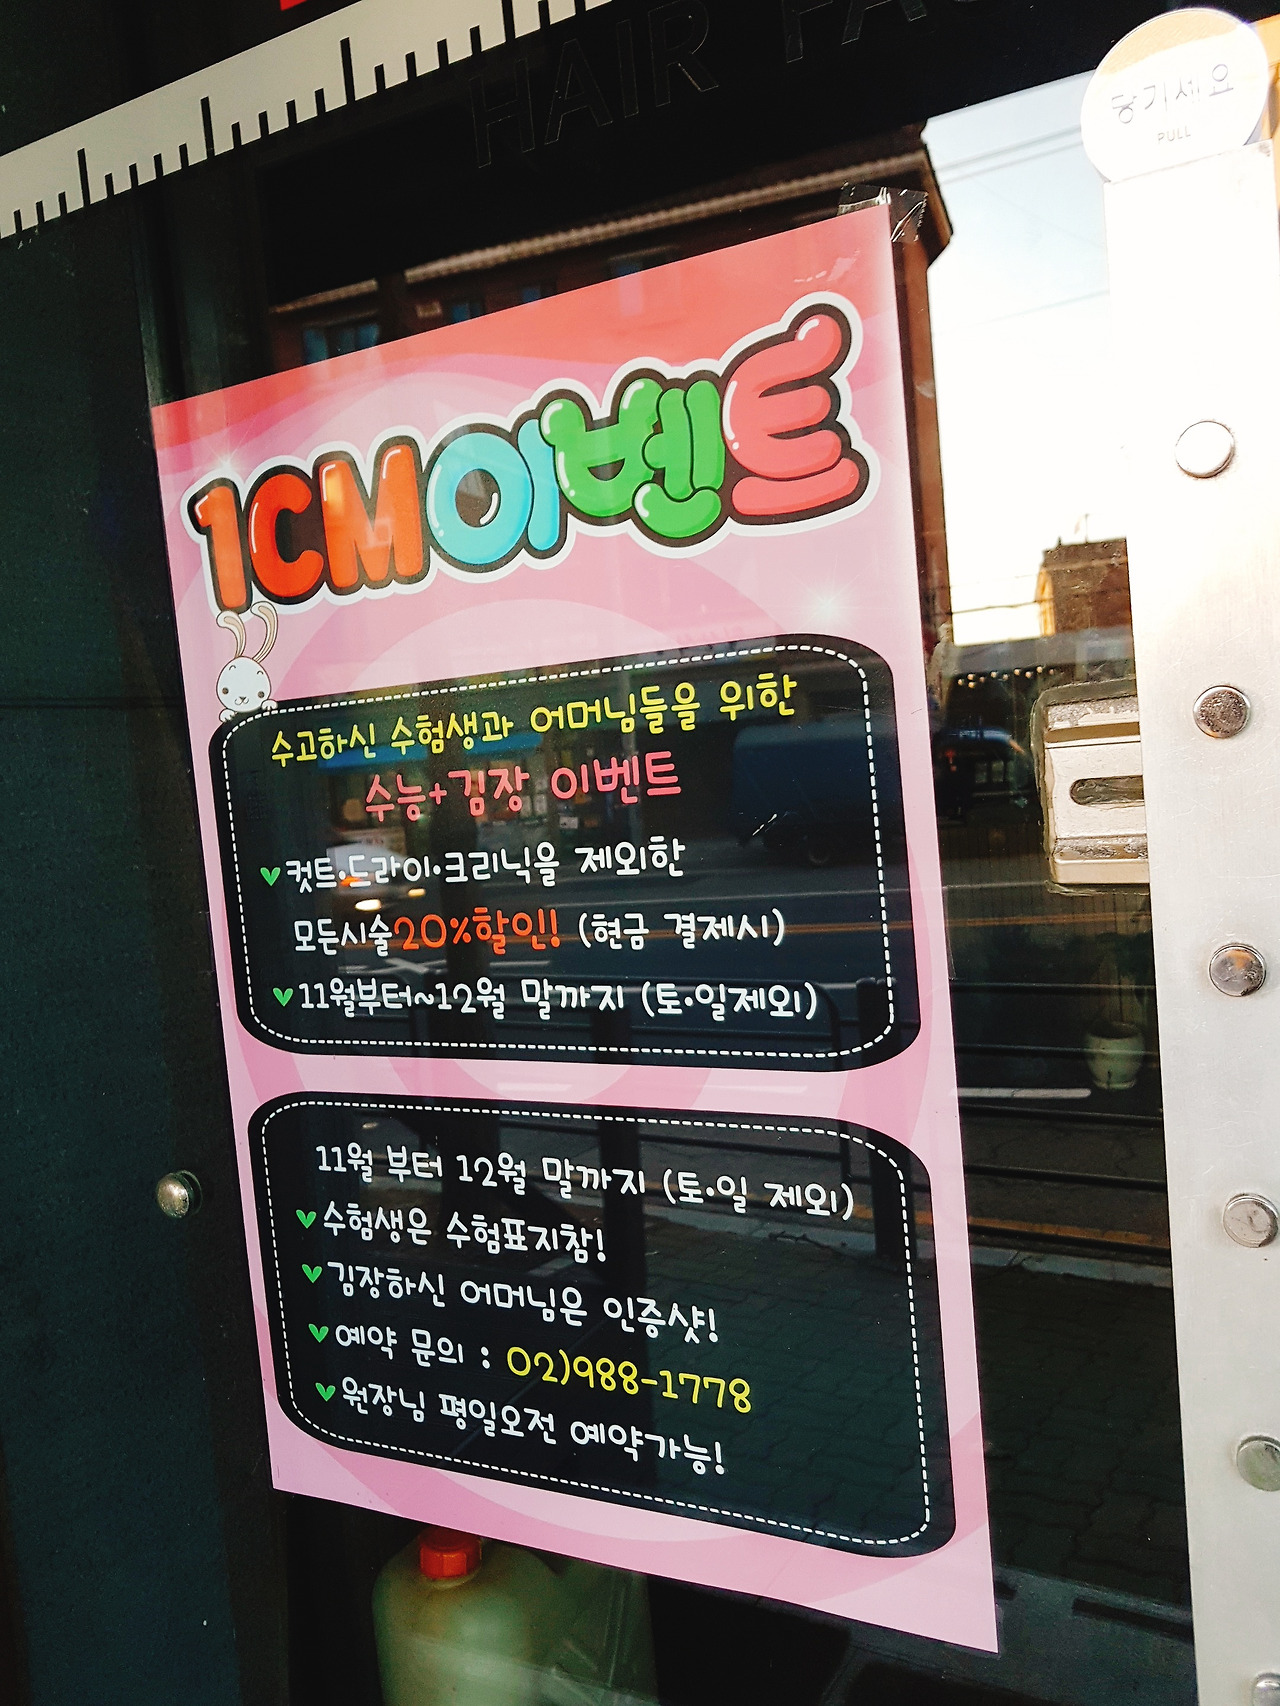 HAIR FAC
당기세요
PULL
1CM이벤트
수고하신 수험생과 어머님들을 위한
수능+김장 이벤트
컷트·드라이·크리닉을 제외한
모든시술20%할인! (현금 결제시)
11월부터~12월 말까지 (토·일제외)
11월 부터 12월 말까지 (토·일 제외)
수험생은 수험표지참!
김장하신 어머님은 인증샷!
예약 문의 : 02)988-1778
원장님 평일오전 예약가능!